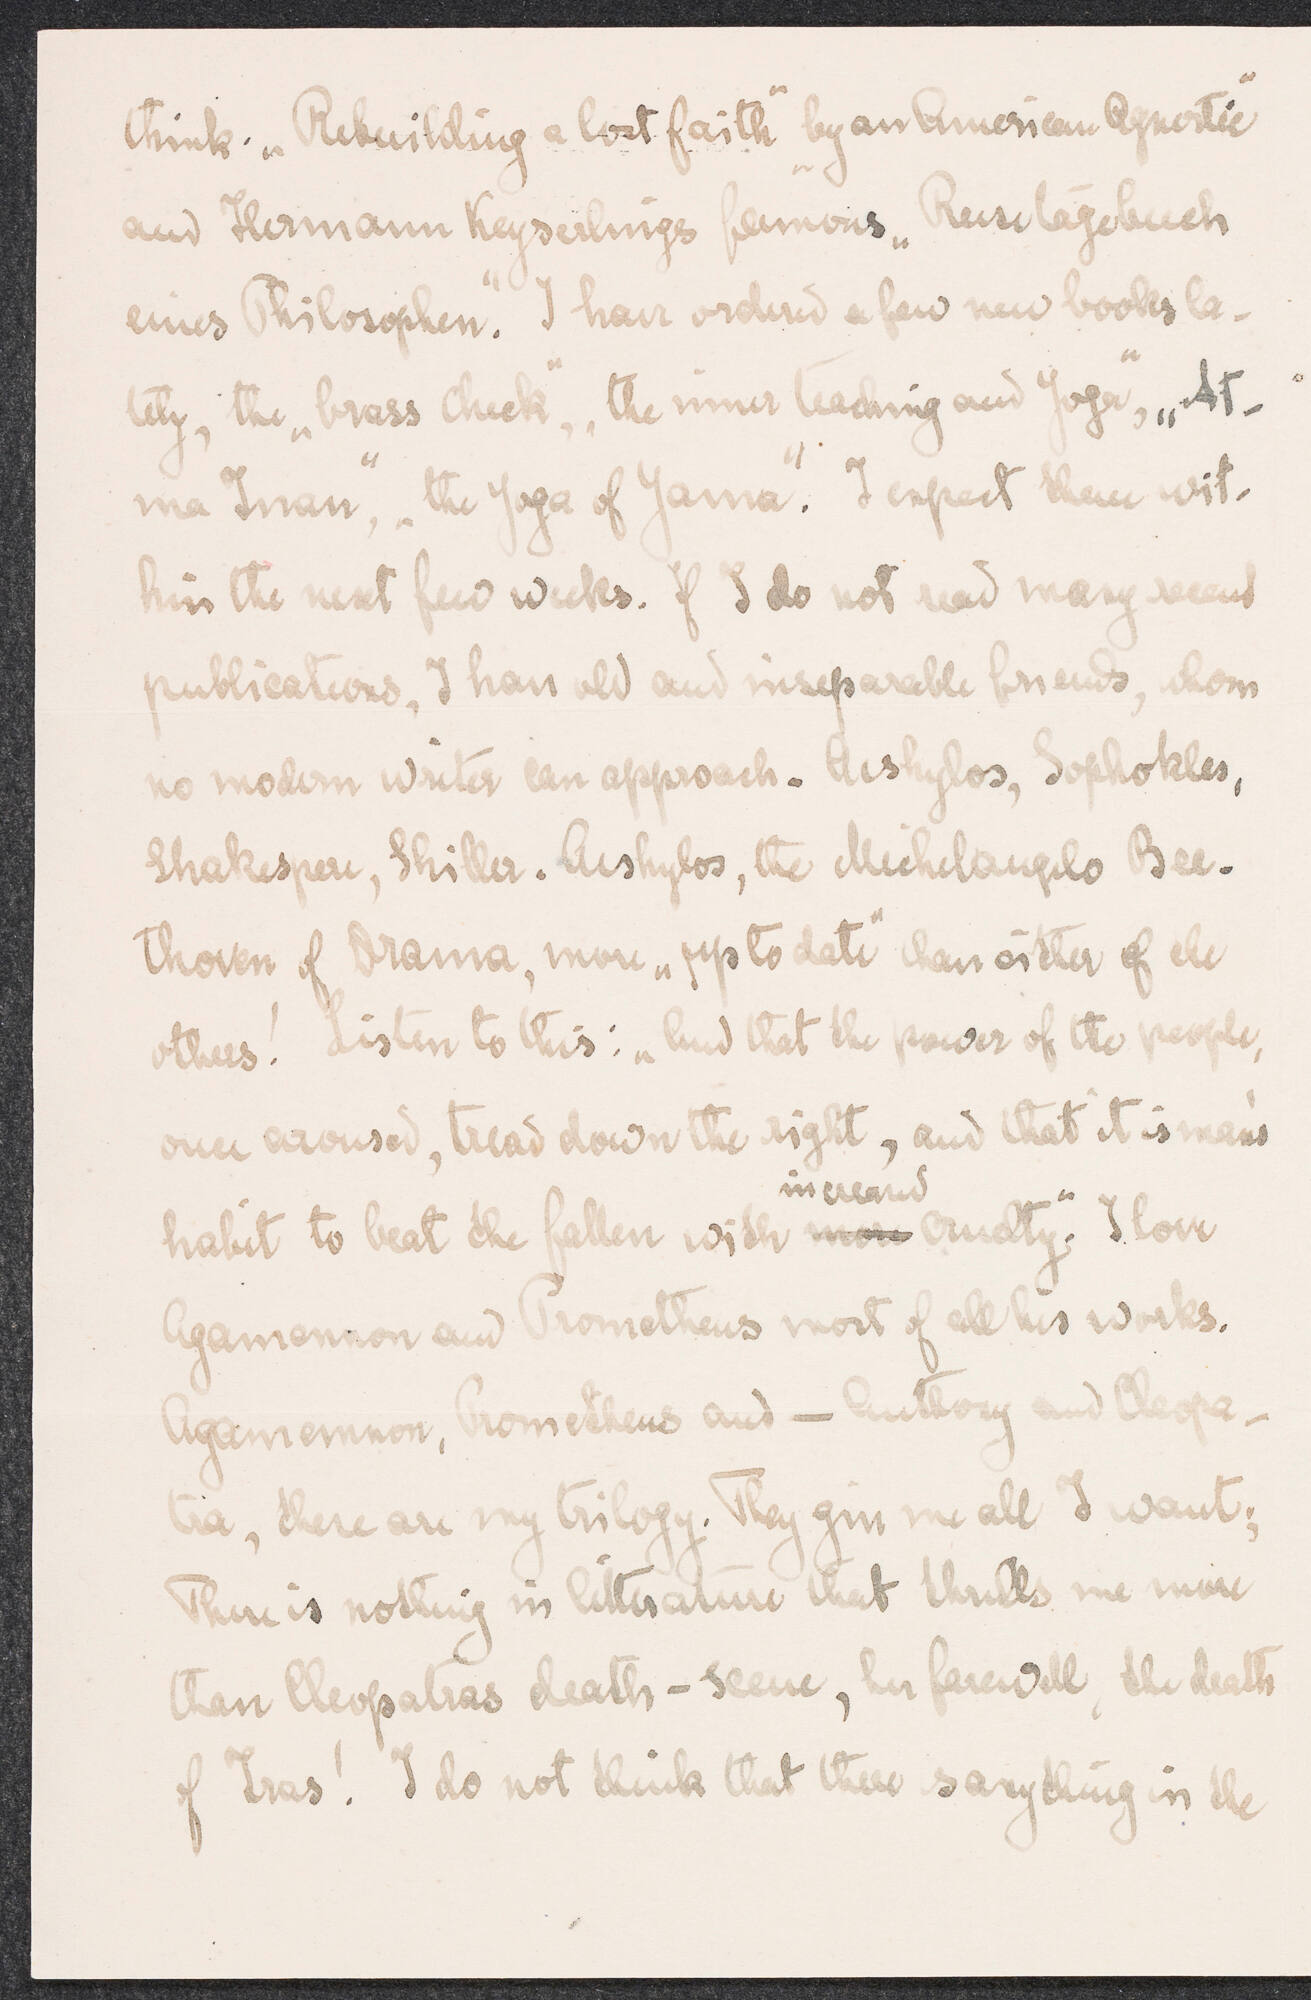 think. „Rebuilding a lost faith" by „an American Agnostic"
and Hermann Keyserlings famous „Reisetagebuch
eines Philosophen". I have ordered a few new books la-
tely, the „brass Check", „the inner teaching and Yoga", „At-
ma Inan", „the Yoga of Yama". I expect them wit-
hin the next few weeks. If I do not read many recent
publications, I have old and inseparable friends, whom
no modern writer can approach. Aeshylos, Sophokles,
Shakespere, Shiller. Aeshylos, the Michelangelo Bee-
thoven of Drama, more „up to date" than either of the
others! Listen to this: „And that the power of the people,
once aroused, tread down the right, and that it is man's
habit to beat the fallen with more increased cruelty". I love
Agamemnon and Prometheus most of all his works.
Agamemnon, Prometheus and – Anthony and Cleopa-
tra, these are my trilogy. They give me all I want;
There is nothing in litterature that thrills me more
than Cleopatras death – scene, her farewell, the death
of Iras! I do not think that there is anything in the